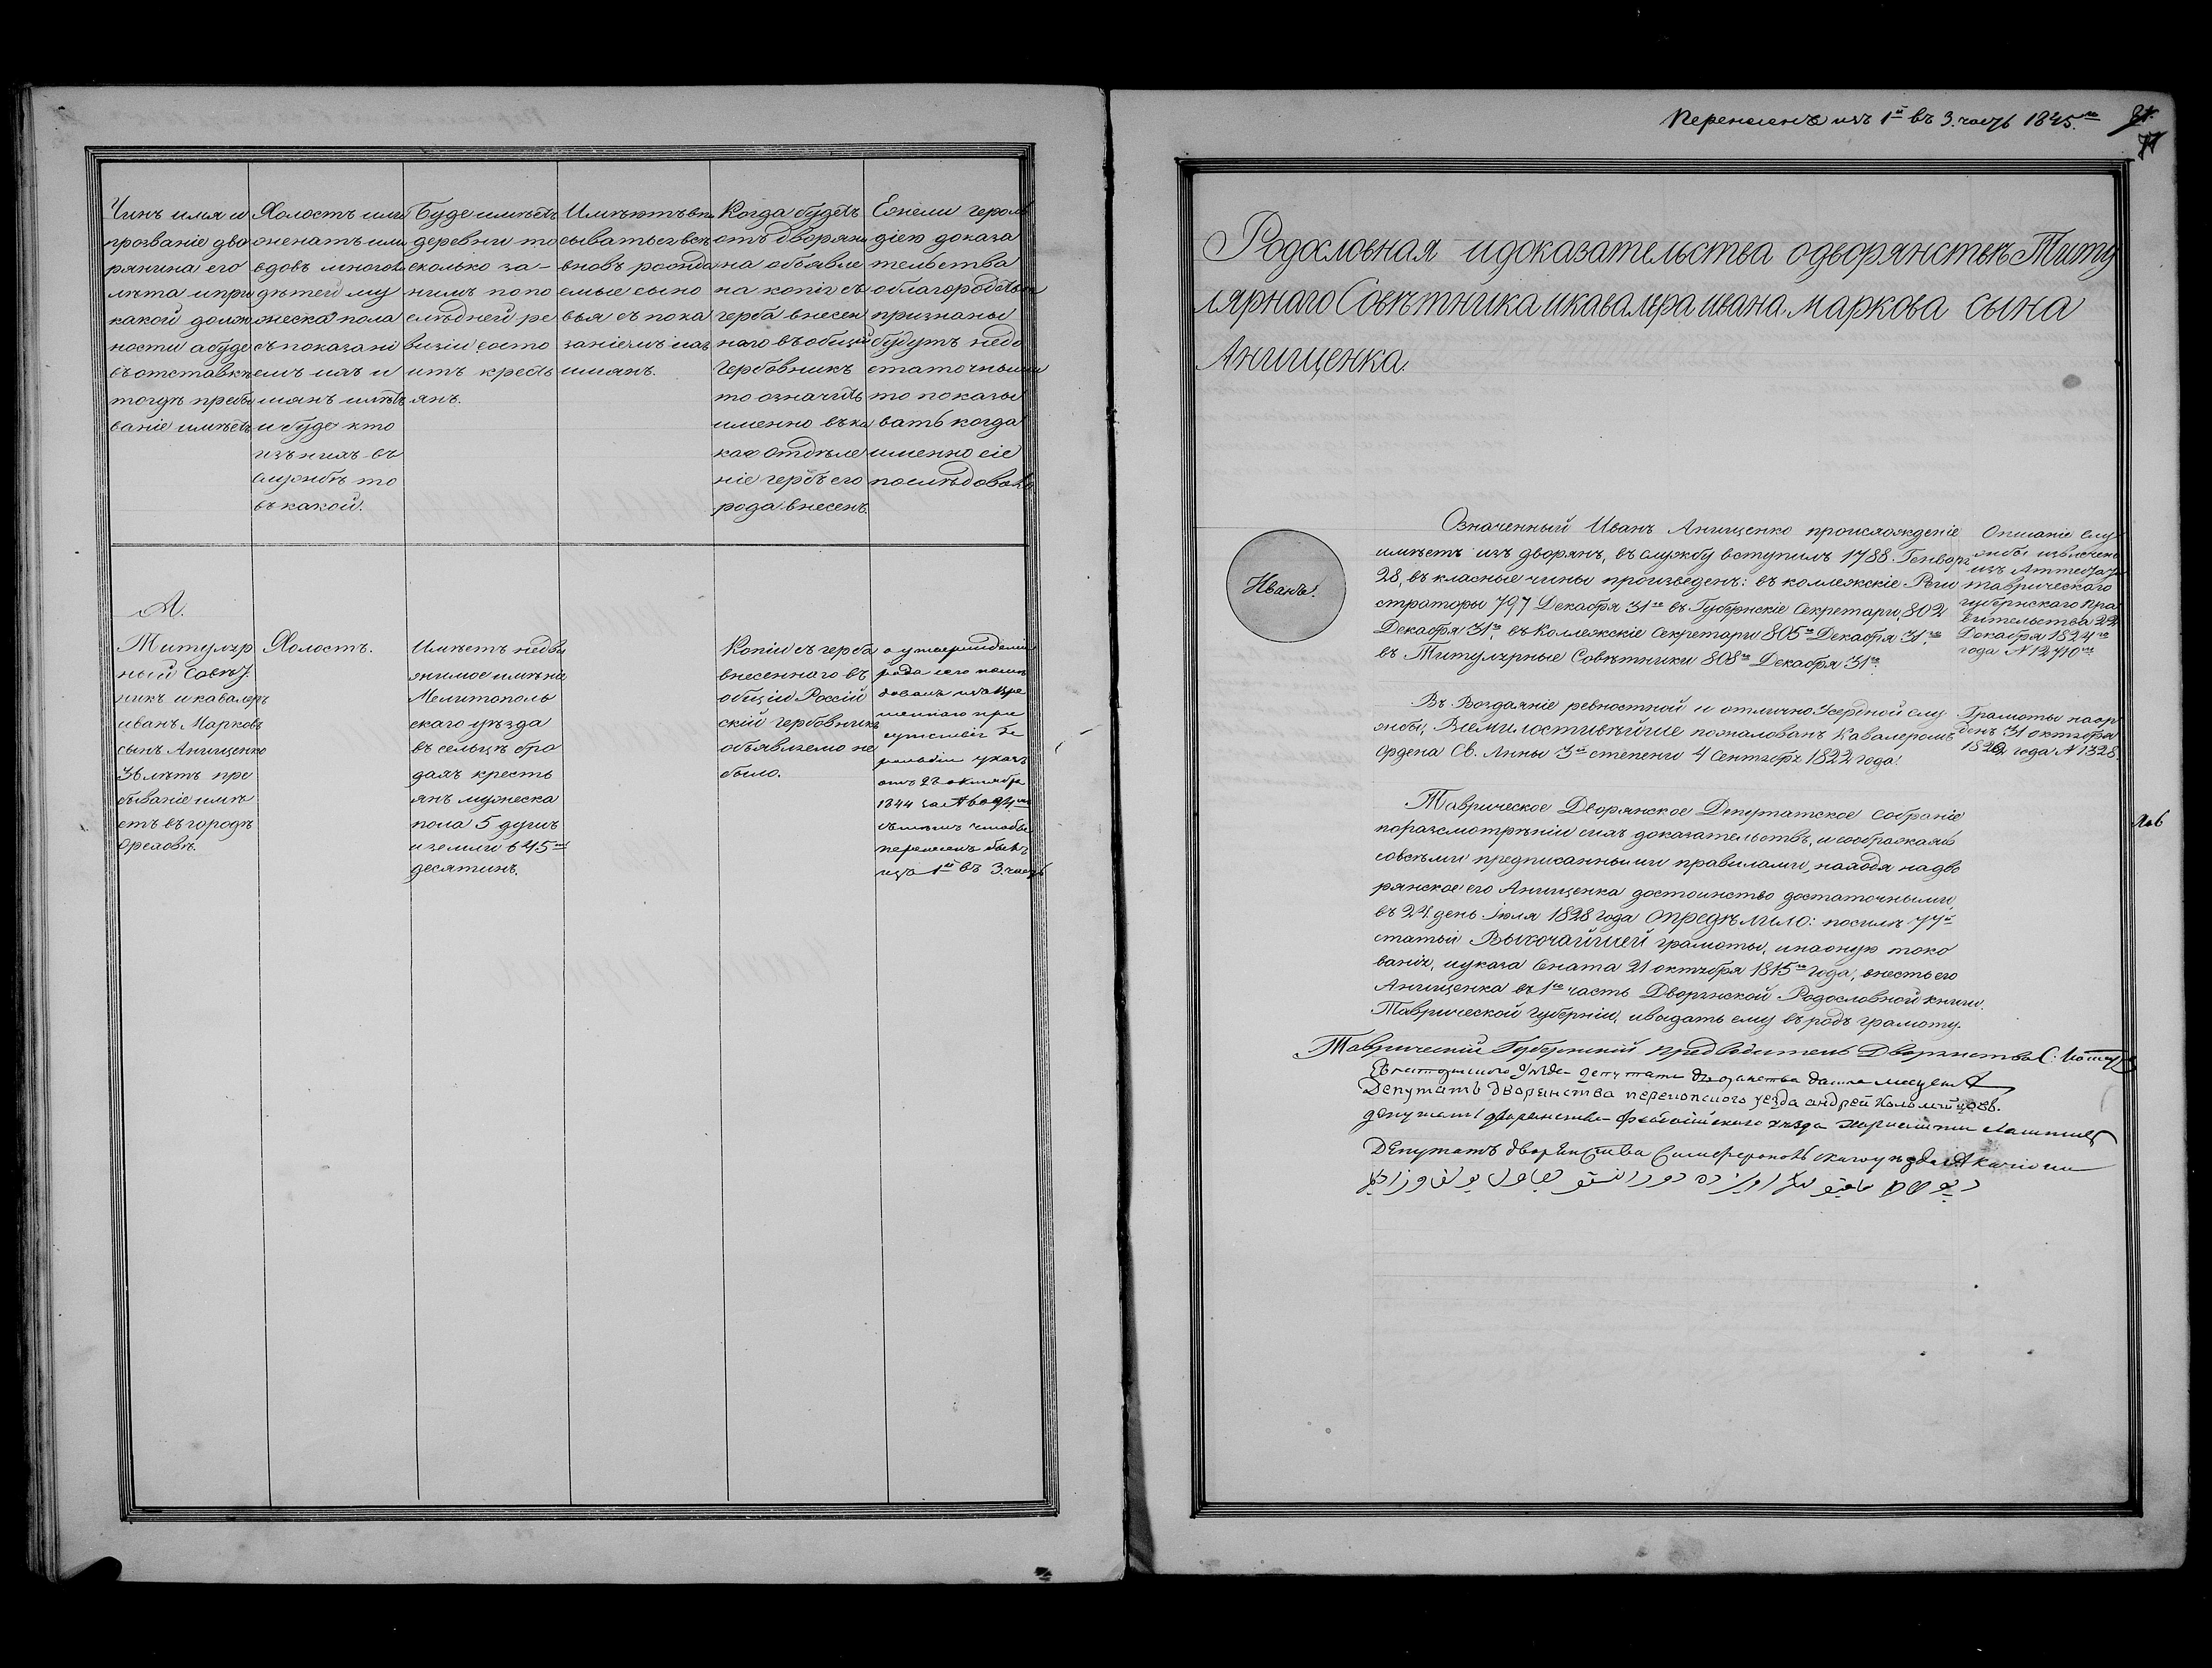 Чинъ имя и
прозваніе дво
рянина его
лѣта и при
какой долж
ности а буде
въ отставкѣ
то гдѣ пребы
ваніе имѣетъ
Холостъ или
женатъ или
вдовъ много ли
дѣтей му
жеска пола
съ показані
емъ ихъ и
мянъ и лѣтъ
и буде кто
изъ нихъ въ
службѣ то
въ какой.
Буде имѣетъ
деревни то
сколько за-
нимъ по по
слѣдней ре
визіи состо
итъ кресть
янъ.
Имѣютъ впи
сыватьсь всѣ
вновь рожда
емые сыно
вья съ пока
заніемъ ихъ
имянъ.
Когда будетъ
отъ дворяни
на объявле
на копія съ
герба внесен
наго въ общій
Гербовникъ
то означить
именно въ ка
кое отдѣле
ніе гербъ его
рода внесенъ.
Ежели героль
діею доказа
тельства
о благородствѣ
признаны
будутъ недо
статочными
то показы
вать когда
именно сіе
послѣдовало
А.
Титуляр
ный Совѣт
никъ и кавалеръ
иванъ Марковъ
сынъ Анищенко
лѣтъ пре
бываніе имѣ
етъ въ городѣ
Ореховѣ.
Холостъ.
Имѣетъ недви
жимое имѣніе
Мелитополь
скаго уѣзда
въ сельцѣ бро
дахъ кресть
янъ мужеска
пола 5 душъ
и земли 645
десятинъ.
Копіи съ герба
внесеннаго въ
общій Россій
скій гербовникъ
объявляемо не
было.
о утвержденіи
рода сего послѣ
довалъ изъ Вре
меннаго при
сутствія Ге
рольдіи указъ
отъ 22 октября
1844 за №
съ тѣмъ чтобы
перенесенъ былъ
изъ 1й въ 3. часть
Перенесенъ изъ 1й въ 3. часть 1845.го
71
Родословная и доказательства о дворянствѣ Титу
лярнаго Совѣтника и кавалера ивана маркова сына
Анищенка.
Иванъ.
Означенный Иванъ Анищенко происхожденіе
имѣетъ изъ дворянъ, въ службу вступилъ 1788. Генваря
28, въ класные чины произведенъ: въ коллежскіе Реги
страторы 797 Декабря 31го въ Губернскіе Секретари, 802
Декабря 31го, въ Коллежскіе Секретари 805го Декабря 31го
въ Титулярные Совѣтники 808го Декабря 31го.
Описаніе слу
жбы извлечено
изъ Аттестата
таврическаго
губернскаго пра
вительства 22
Декабря 1824го
года № 12,710
Въ Воздаяніе ревностной и отлично Усердной слу
жбы, Всемилостивѣйше пожалованъ Кавалеромъ
ордена Св. Анны 3й степени 4 Сентября 1822 года.
Грамоты на ор
денъ 31 октября
1822 года № 1328.
Таврическое Дворянское Депутатское собраніе
по разсмотрѣніи сихъ доказательствъ, и соображаяъ
со всѣми предписанными правилами, находя на дво
рянское его Анищенка достоинство достаточными,
въ 24 день Іюля 1828 года опредѣлило: по силѣ 77й
статьи Высочайшей грамоты, и на оную токо
ванія, и указа Сената 21 октября 1815го года, внесть его
Анищенка въ 1ю часть Дворянской Родословной книги.
Таврической губерніи, и выдать ему въ родъ грамоту.
Таврический Губернский предводитель Дворянства
Депутатъ дворянства перекопского уезда андрей Коломийцовъ.
депутатъ дворянства Феодосійского уезда
Депутатъ дворянства Симферопольскаго уѣзда